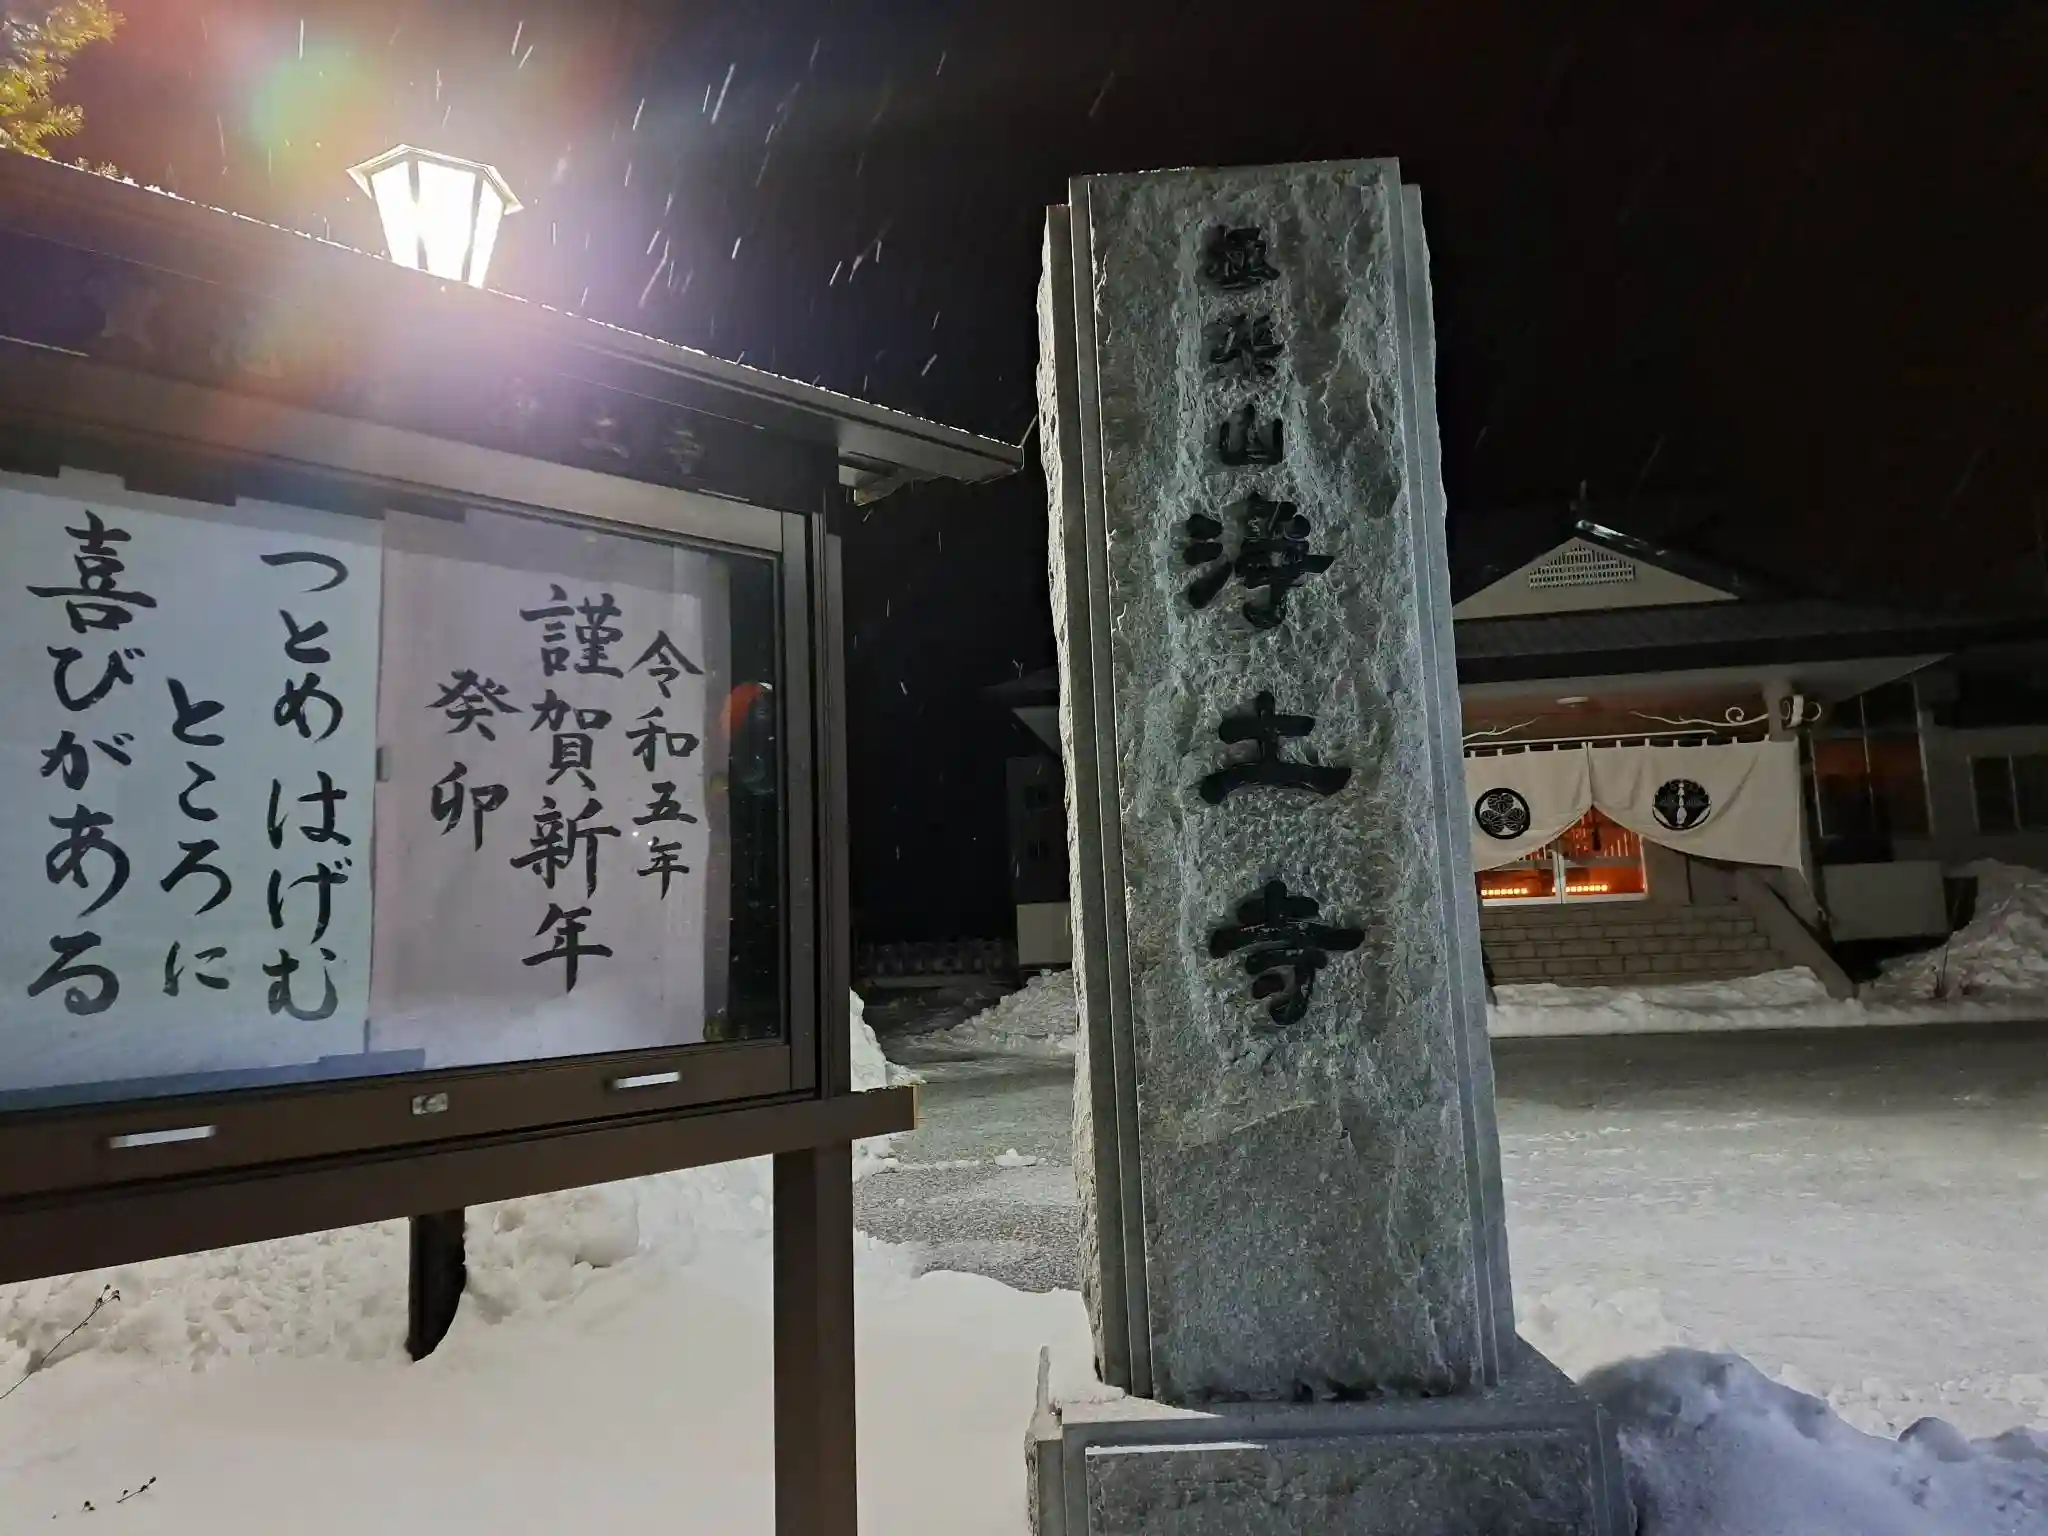 極楽山浄土寺
令和五年
謹賀新年
癸卯
つとめはげむ
ところに
喜びがある
土寺